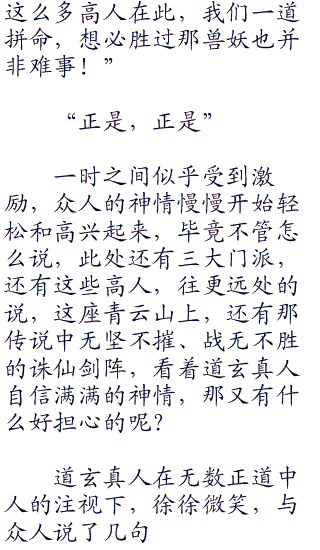 这么多高人在此，我们一道
拼命，想必胜过那兽妖也并
非难事！”
“正是，正是”
一时之间似乎受到激
励，众人的神情慢慢开始轻
松和高兴起来，毕竟不管怎
么说，此处还有三大门派，
还有这些高人，往更远处的
说，这座青云山上，还有那
传说中无坚不摧、战无不胜
的诛仙剑阵，看着道玄真人
自信满满的神情，那又有什
么好担心的呢？
道玄真人在无数正道中
人的注视下，徐徐微笑，与
众人说了几句